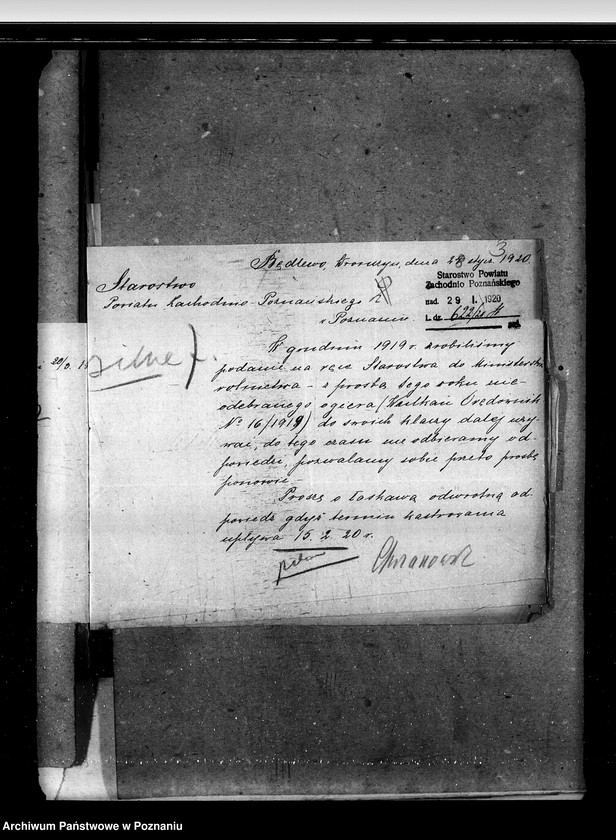 3
Będlewo, dnia 28 stycz. 1920.
Starostwo
Powiatu Zachodnio-Poznańskiego
w Poznaniu
Starostwo Powiatu
Zachodnio Poznańskiego
nad. 29 I. 1920
L. dz. 622/20
pilne
W grudniu 1919 r. zrobiliśmy
podanie na ręce Starostwa do Ministerstwa
rolnictwa - z prośbą tego roku nie-
odebranego ogiera (Orędownik
No 16/1919) do swoich klaczy dalej uży-
wać, do tego czasu nie odbieramy od-
powiedzi, pozwalamy sobie przeto prośbę
ponowić.-
Proszę o łaskawą odwrotną od-
powiedź gdyż termin kastrowania
upływa 15. 2. 20 r.
pilne
Archiwum Państwowe w Poznaniu